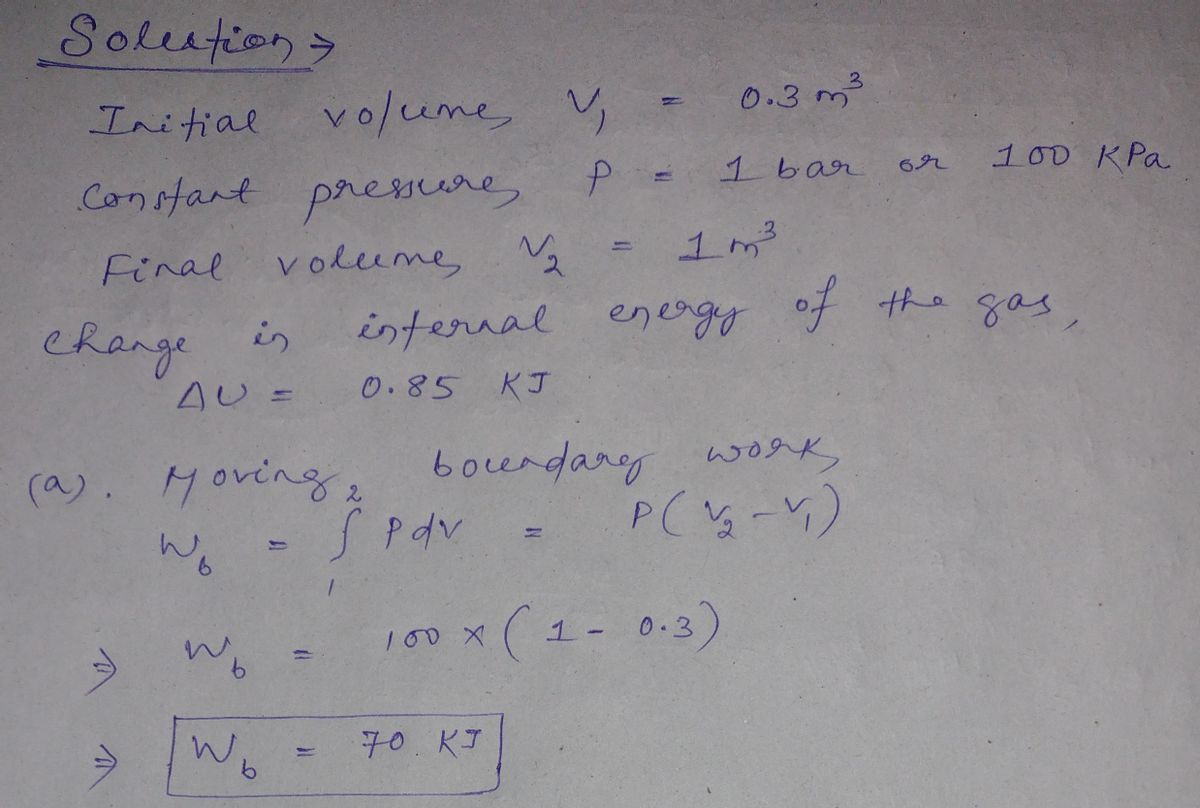 Solution →
Initial volume, V₁ = 0.3 m³
Constant pressure, P = 1 bar or 100 KPa
Final volume, V₂ = 1 m³
Change in internal energy of the gas,
ΔU = 0.85 KJ
(a). Moving boundary work,
W_b = ∫₁² P dV = P(V₂ - V₁)
⇒ W_b = 100 × (1 - 0.3)
⇒ W_b = 70 KJ